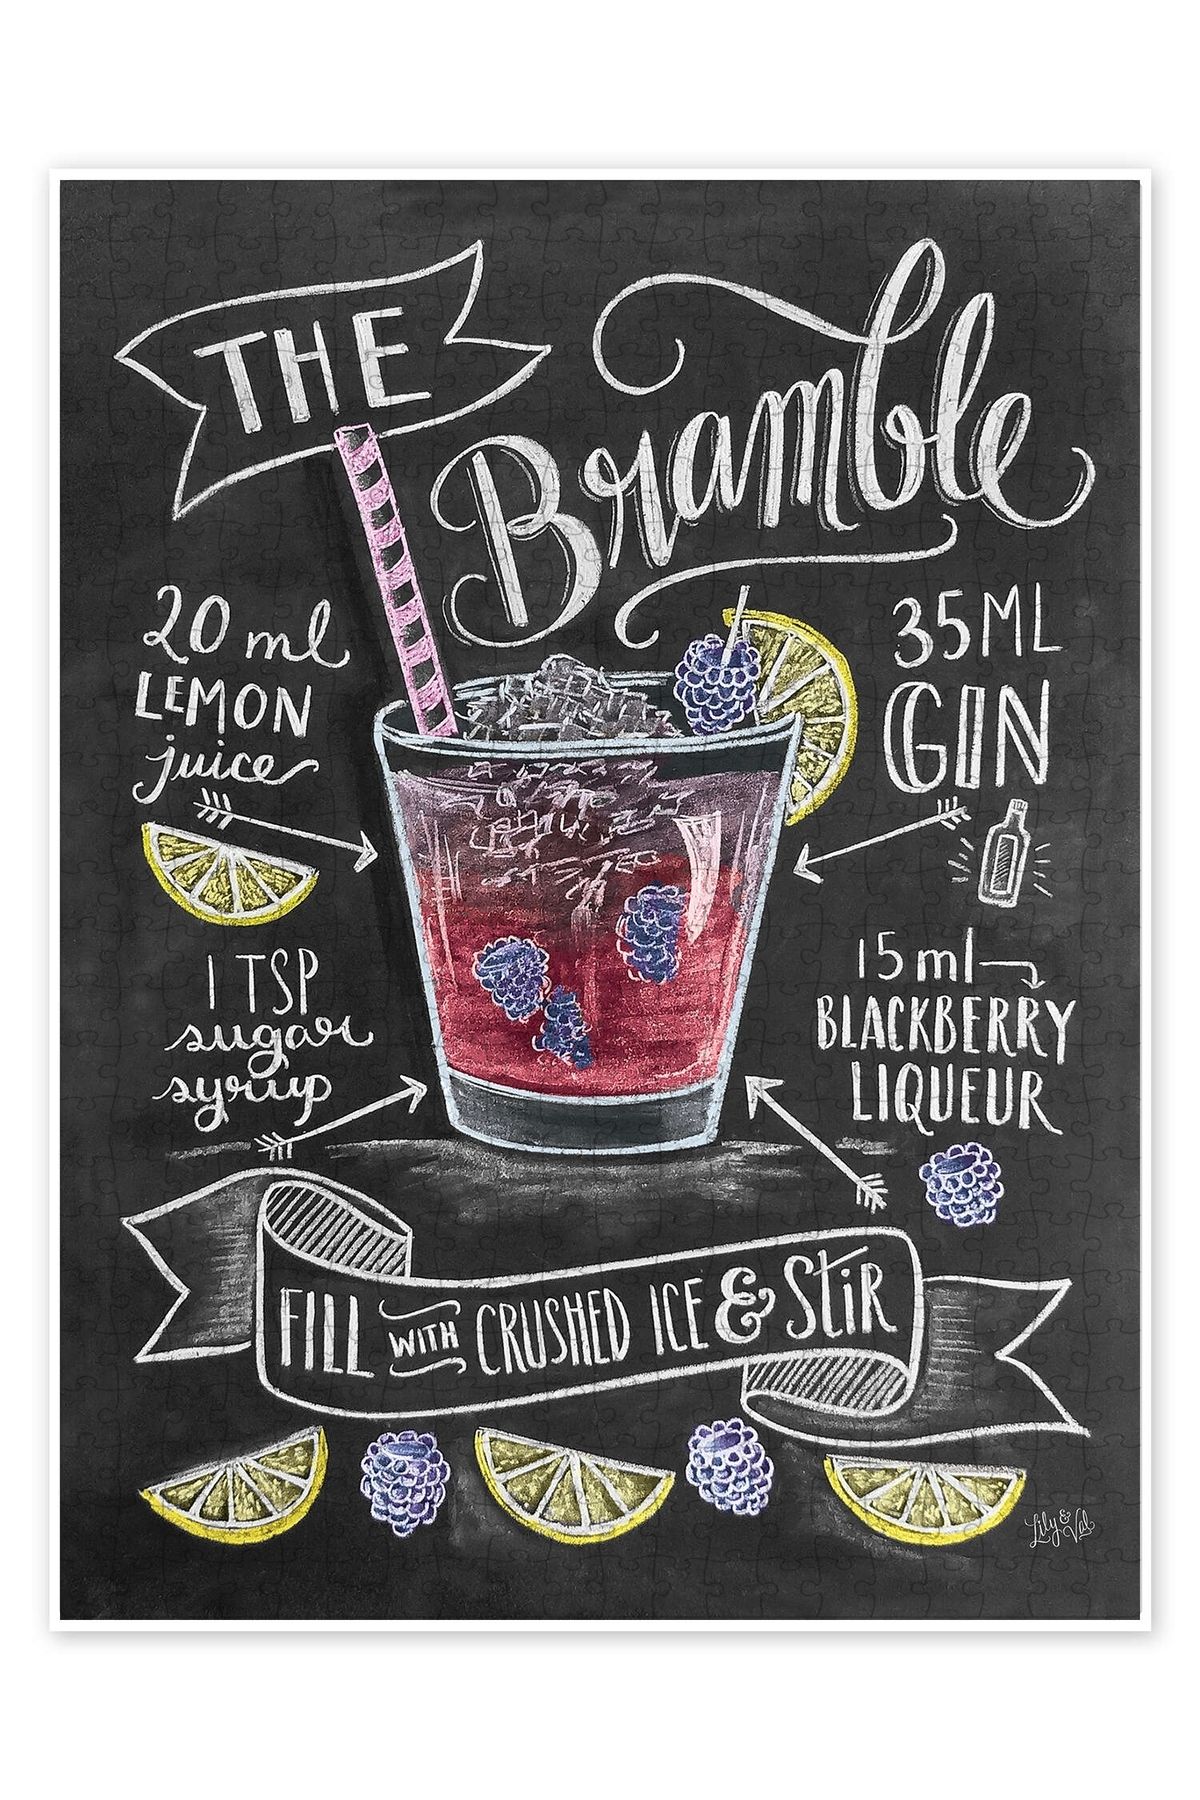 THE
Bramble
20 ml
LEMON
juice
35ML
GIN
1 TSP
sugar
syrup
15 ml
BLACKBERRY
LIQUEUR
FILL WITH CRUSHED ICE & STIR
Lily &
Val